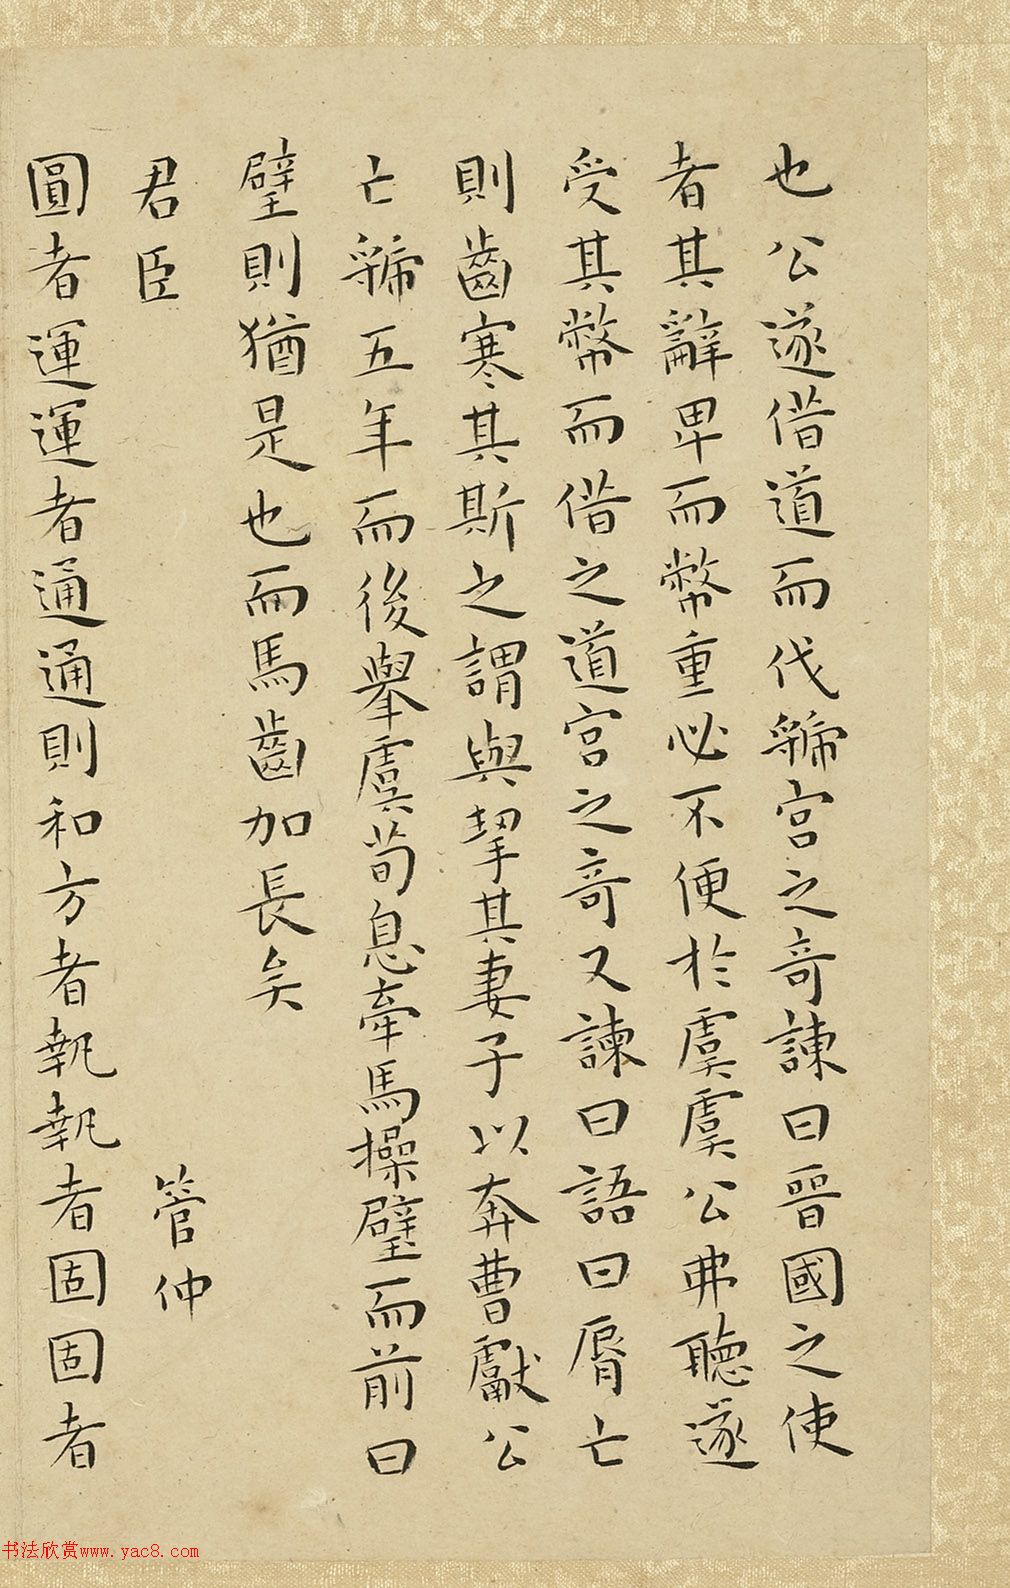 也公遂借道而伐虢宮之奇諫曰晉國之使
者其辭卑而幣重必不便於虞虞公弗聽遂
受其幣而借之道宮之奇又諫曰語曰脣亡
則齒寒其斯之謂與挈其妻子以奔曹獻公
亡虢五年而後舉虞荀息牽馬操璧而前曰
璧則猶是也而馬齒加長矣
君臣 管仲
圓者運運者通通則和方者執執者固固者
书法欣赏www.yac8.com